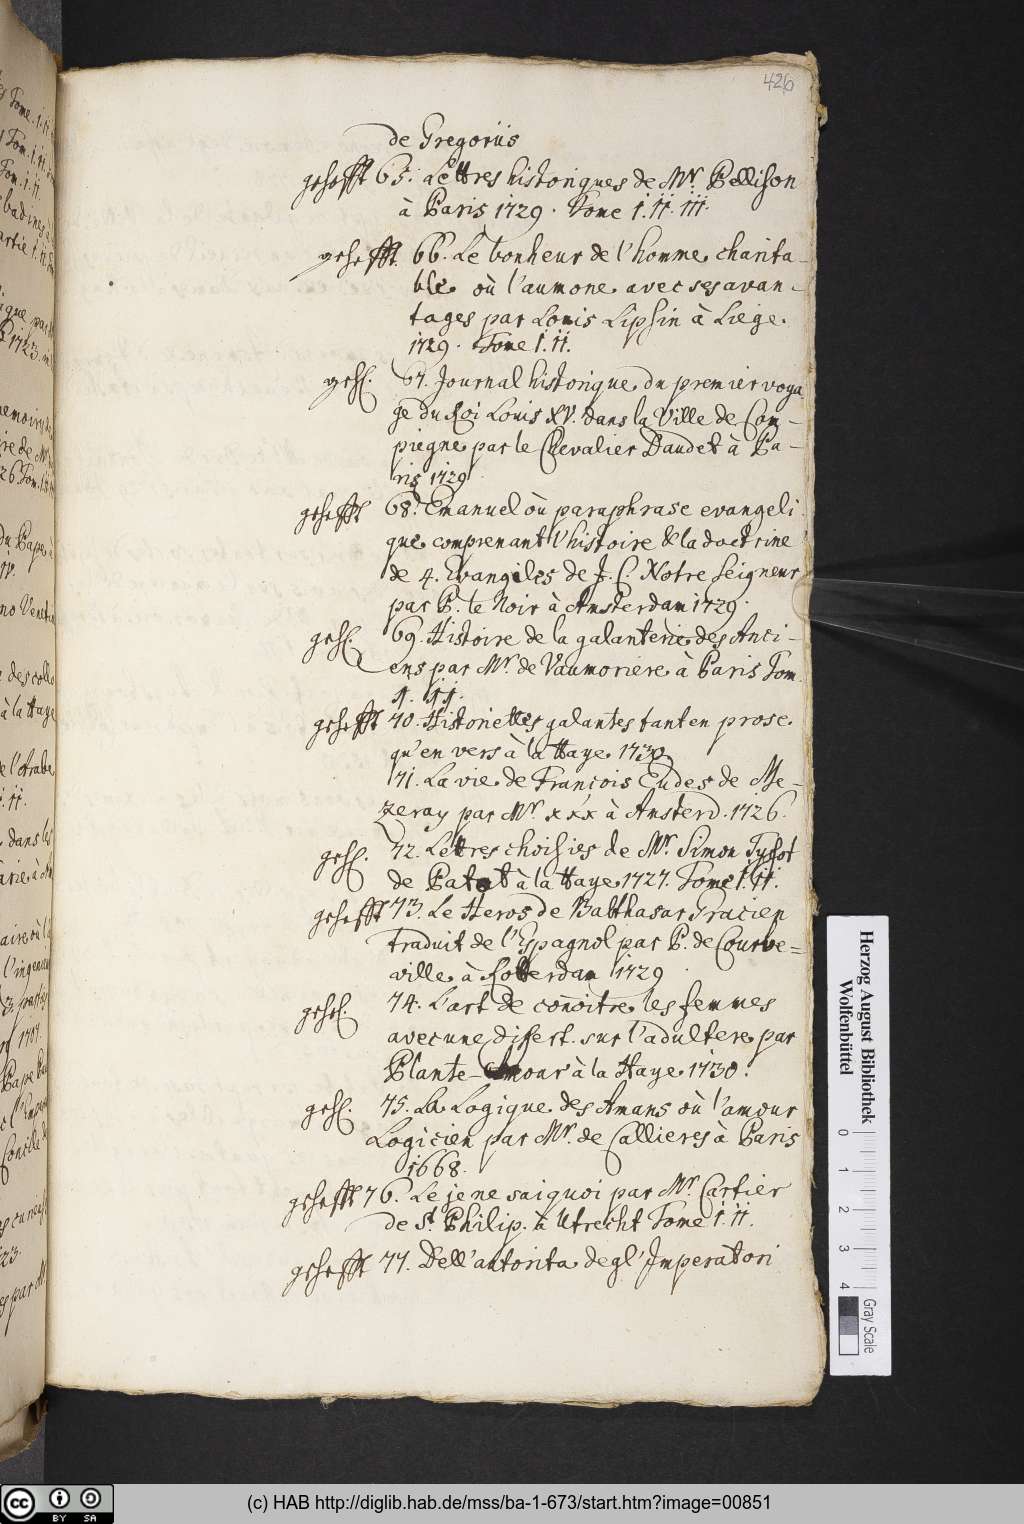 426
de Gregoriis
gehefft 65. Lettres historiques de Mr. Pellison
à Paris 1729. Tome I. II. III.
gehefft. 66. Le bonheur de l'homme charita-
ble où l'aumone avec ses avan-
tages par Louis Lipsin à Liege.
1729. Tome I. II.
geh. 67. Journal historique du premier voya
ge du Roi Louis XV. dans la Ville de Com-
piegne par le Chevalier Daudet à Pa-
ris 1729
gehefft 68. Emanuel où paraphrase evangeli
que comprenant l'histoire & la doctrine
de 4. Evangiles de J. C. Notre Seigneur
par P. le Noir à Amsterdam 1729.
geh. 69. Histoire de la galanterie des Anci-
ens par Mr. de Vaumoriere à Paris Tom.
I. II.
gehefft 70. Historiettes galantes tant en prose
qu'en vers à la Haye 1730
71. La vie de François Eudes de Me-
zeray par Mr. xxx à Amsterd. 1726.
geh. 72. Lettres choisies de Mr. Simon Tyssot
de Patot à la Haye 1727. Tome I. II.
gehefft 73. Le Heros de Balthasar Gracien
traduit de l'Espagnol par P. de Courbe=
ville à Rotterdam 1729
geh. 74. L'art de conoitre les femmes
avec une disert. sur l'adultere par
Plante-Amour à la Haye 1730.
geh. 75. La Logique des Amans où l'amour
Logicien par Mr. de Callieres à Paris
1668.
gehefft 76. Le je ne sai quoi par Mr. Cartier
de St. Philip. à Utrecht Tome I. II.
gehefft 77. Dell' autorita degl' Imperatori
Herzog August Bibliothek
Wolfenbüttel
0 1 2 3 4
Gray Scale
(c) HAB http://diglib.hab.de/mss/ba-1-673/start.htm?image=00851
cc BY SA